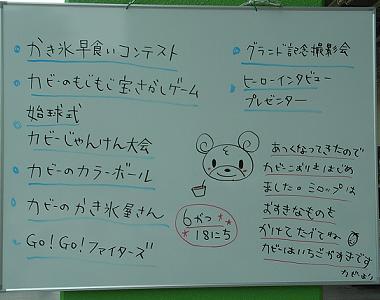 かき氷早食いコンテスト
カビーのもじもじ宝さがしゲーム
始球式
カビーじゃんけん大会
カビーのカラーボール
カビーのかき氷屋さん
GO! GO! ファイターズ
グランド記念撮影会
ヒーローインタビュー
プレゼンター
6がつ
18にち
あつくなってきたので
カビーこおりもはじめ
ました。シロップは
おすきなものを
かけてたべてね
カビーはいちごがすきです
カビーより